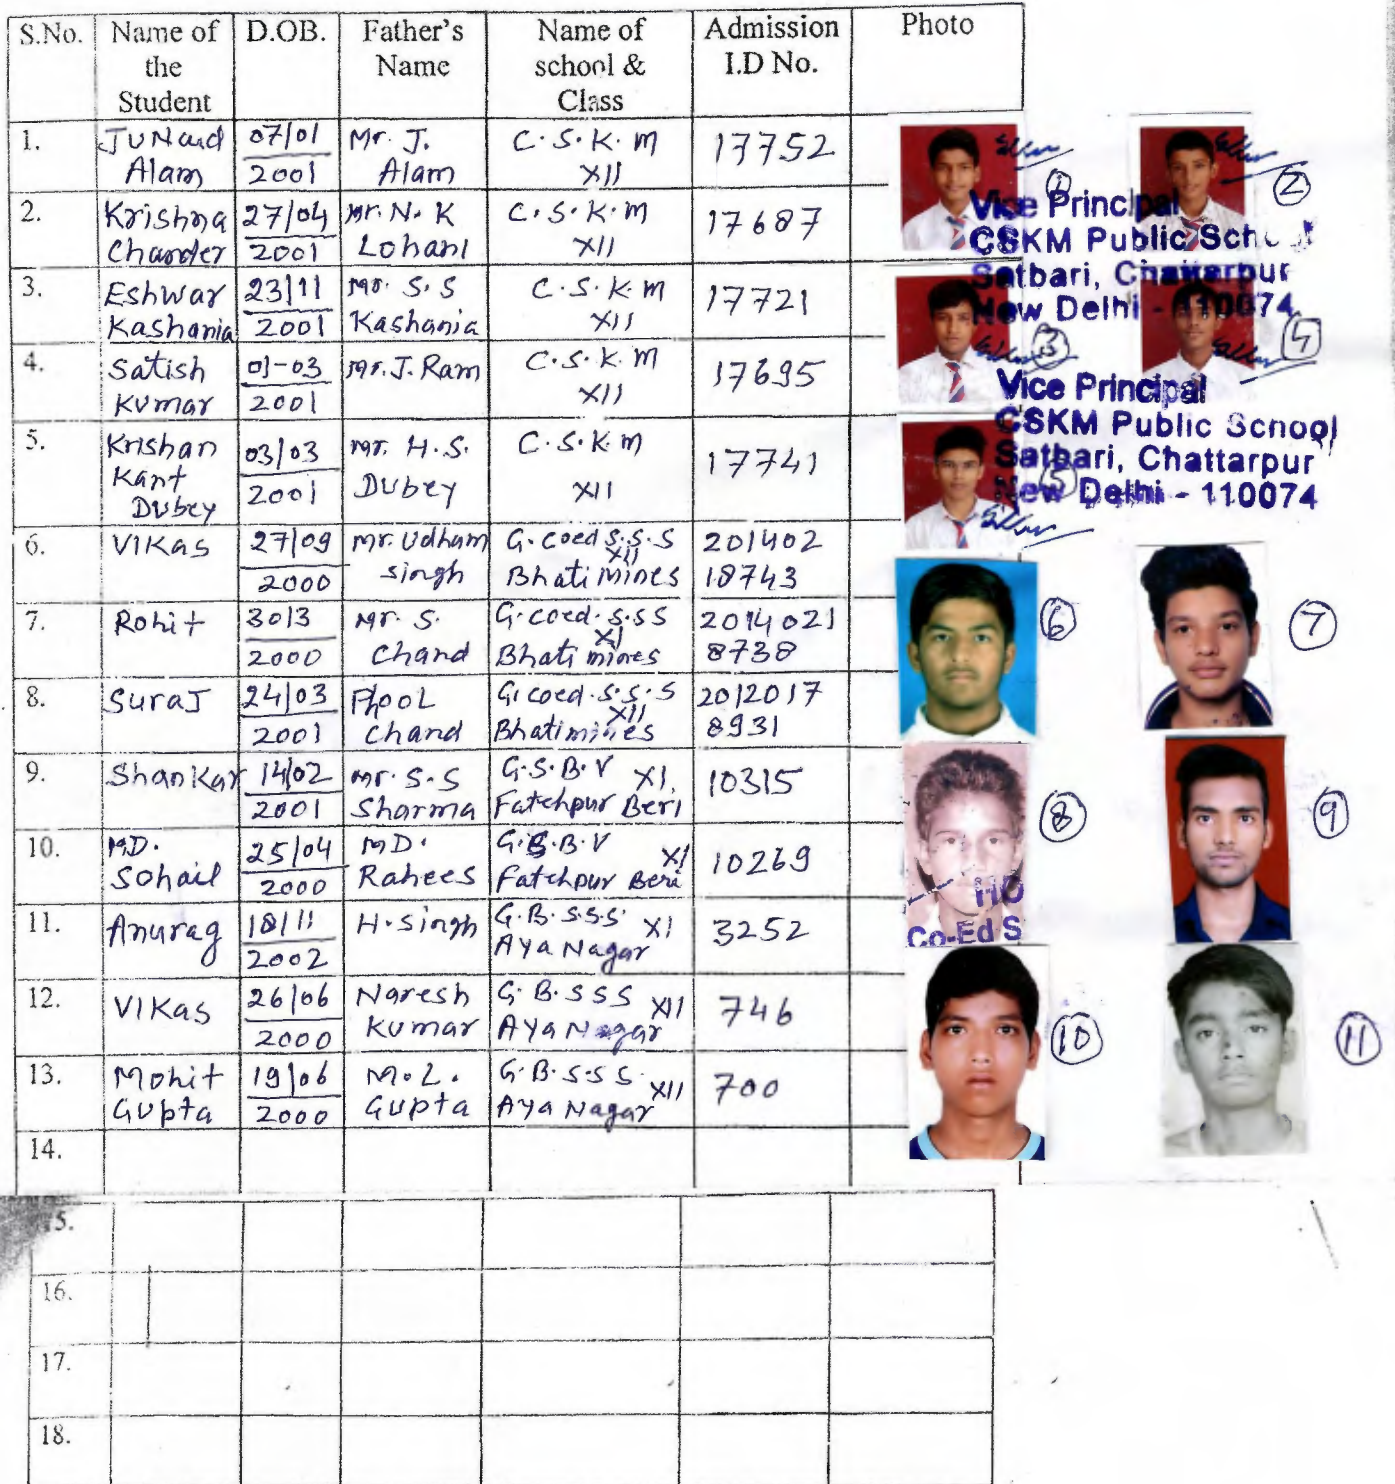 S.No. Name of the Student D.OB. Father's Name Name of school & Class Admission I.D No. Photo
1. JUNaid Alam 07/01 2001 Mr. J. Alam C.S.K.M XII 17752
2. Krishna Chander 27/04 2001 Mr. N.K Lohani C.S.K.M XII 17687
3. Eshwar Kashania 23/11 2001 Mr. S.S Kashania C.S.K.M XII 17721
4. Satish Kumar 01-03 2001 Mr. J. Ram C.S.K.M XII 17695
5. Krishan Kant Dubey 03/03 2001 Mr. H.S. Dubey C.S.K.M XII 17741
6. VIKas 27/09 2000 Mr. Udham Singh G. Coed S.S.S XII Bhati Mines 201402 18743
7. Rohit 30/3 2000 Mr. S. Chand G. Coed. S.SS XI Bhati mines 2014021 8738
8. SuraJ 24/03 2001 PhooL Chand G. Coed. S.S.S XII Bhatimines 2012017 8931
9. ShanKar 14/02 2001 Mr. S.S Sharma G.S.B.V XI, Fatehpur Beri 10315
10. MD. Sohail 25/04 2000 MD. Rahees G.S.B.V XI Fatehpur Beri 10269
11. Anurag 18/11 2002 H. Singh G.B.S.S.S XI AYa Nagar 3252
12. VIKas 26/06 2000 Naresh Kumar G.B.SSS XII AYa Nagar 746
13. Mohit Gupta 19/06 2000 M.L. Gupta G.B.S.S.S. XII AYa Nagar 700
14.
15.
16.
17.
18.
1 2
Vice Principal
CSKM Public School
Satbari, Chattarpur
New Delhi - 110074
3 4
Vice Principal
CSKM Public School
Satbari, Chattarpur
New Delhi - 110074
5
6 7
8 9
HO
Co-Ed S
10 11